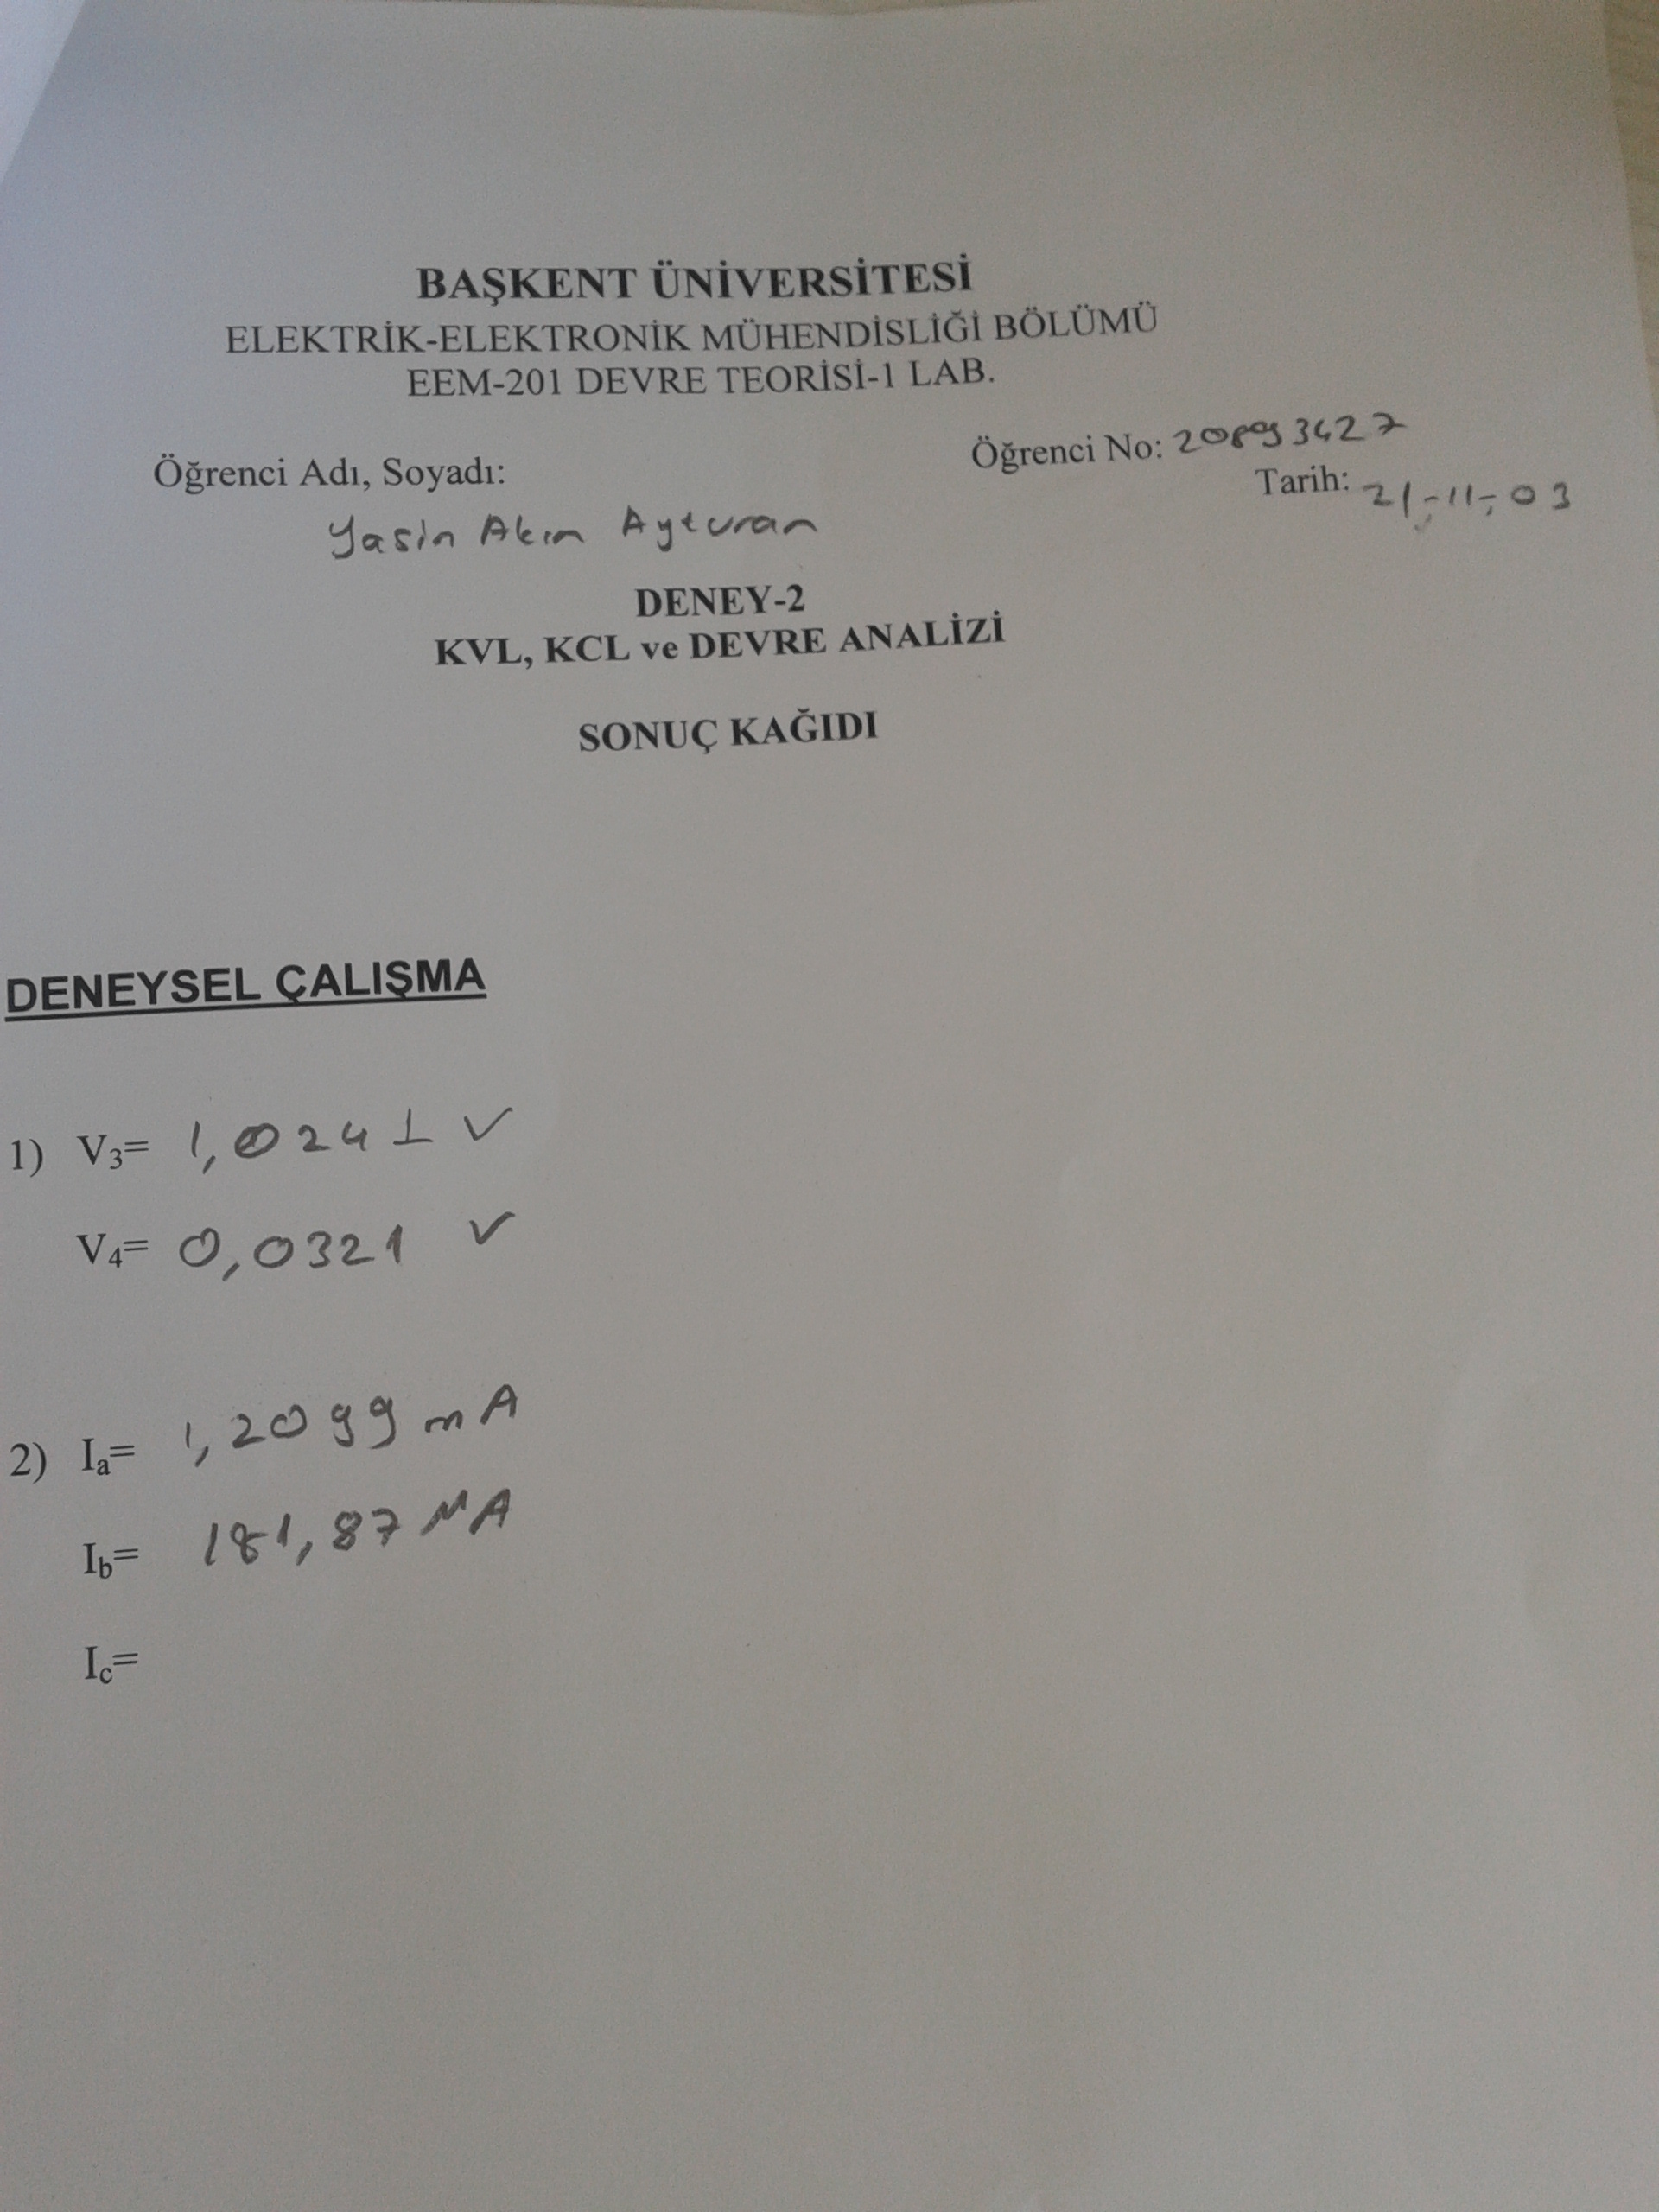 BAŞKENT ÜNİVERSİTESİ
ELEKTRİK-ELEKTRONİK MÜHENDİSLİĞİ BÖLÜMÜ
EEM-201 DEVRE TEORİSİ-1 LAB.
Öğrenci Adı, Soyadı:
Öğrenci No:
Tarih: 21-11-03
Yasin Akın Ayturan
DENEY-2
KVL, KCL ve DEVRE ANALİZİ
SONUÇ KAĞIDI
DENEYSEL ÇALIŞMA
1) V3= 1,0241 V
V4= 0,0321 V
2) Ia= 1,2099 mA
Ib= 181,87 MA
Ic=